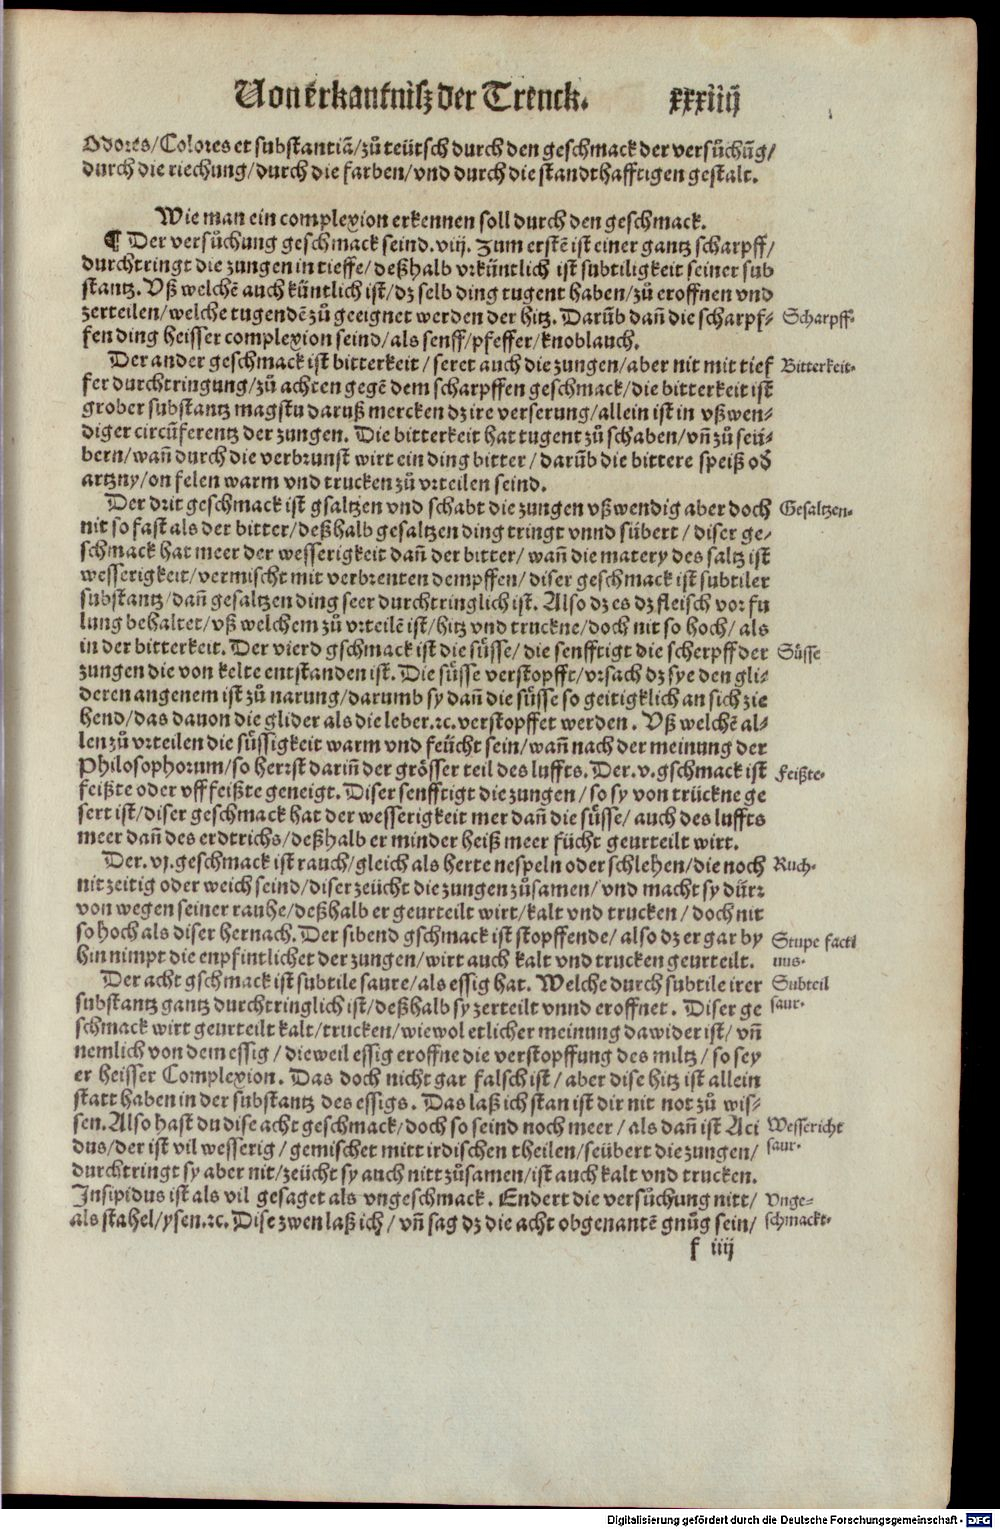 Von erkantnisz der Trenck. xxxiiij
Odores/Colores et substantiā/zů teütsch durch den geschmack der versůchūg/
durch die riechung/durch die farben/vnd durch die standthafftigen gestalt.
Wie man ein complexion erkennen soll durch den geschmack.
¶ Der versůchung geschmack seind.viij. Zum erstē ist einer gantz scharpff/
durchtringt die zungen in tieffe/deßhalb vrküntlich ist subtiligkeit seiner sub
stantz. Vß welchē auch küntlich ist/dz selb ding tugent haben/zů eroffnen vnd
zerteilen/welche tugendē zů geeignet werden der hitz. Darūb dañ die scharpf-
fen ding heisser complexion seind/als senff/pfeffer/knoblauch.
Scharpff-
Der ander geschmack ist bitterkeit/ seret auch die zungen/aber nit mit tief
Bitterkeit-
fer durchtringung/zů achten gegē dem scharpffen geschmack/die bitterkeit ist
grober substantz magstu daruß mercken dz ire verserung/allein ist in vßwen-
diger circūferentz der zungen. Die bitterkeit hat tugent zů schaben/vñ zů seü-
bern/wañ durch die verbrunst wirt ein ding bitter/ darūb die bittere speiß od̄
artzny/on felen warm vnd trucken zů vrteilen seind.
Der drit geschmack ist gsaltzen vnd schabt die zungen vßwendig aber doch
Gesaltzen-
nit so fast als der bitter/deßhalb gesaltzen ding tringt vnnd sübert/ diser ge-
schmack hat meer der wesserigkeit dañ der bitter/ wañ die matery des saltz ist
wesserigkeit/vermischt mit verbrenten dempffen/ diser geschmack ist subtiler
substantz/dañ gesaltzen ding seer durchtringlich ist. Also dz es dz fleisch vor fu
lung behaltet/vß welchem zů vrteilē ist/hitz vnd truckne/doch nit so hoch/ als
in der bitterkeit. Der vierd gschmack ist die süsse/ die senfftigt die scherpff der
Süsse
zungen die von kelte entstanden ist. Die süsse verstopfft/vrsach dz sye den gli-
deren angenem ist zů narung/darumb sy dañ die süsse so geitigklich an sich zie
hend/das dauon die glider als die leber.⁊c.verstopffet werden. Vß welchē al-
len zů vrteilen die süssigkeit warm vnd feücht sein/wañ nach der meinung der
Philosophorum/so herrst dariñ der grösser teil des luffts. Der.v.gschmack ist
Feißte-
feißte oder vff feißte geneigt. Diser senfftigt die zungen/ so sy von trückne ge
sert ist/diser geschmack hat der wesserigkeit mer dañ die süsse/ auch des luffts
meer dañ des erdtrichs/deßhalb er minder heiß meer fücht geurteilt wirt.
Der.vj.geschmack ist rauch/gleich als herte nespeln oder schlehen/die noch
Ruch-
nit zeitig oder weich seind/diser zeücht die zungen zůsamen/ vnd macht sy dürr
von wegen seiner rauhe/deßhalb er geurteilt wirt/kalt vnd trucken/ doch nit
so hoch als diser hernach. Der sibend gschmack ist stopffende/ also dz er gar by
Stupe facti
nus-
hin nimpt die enpfintlichet der zungen/wirt auch kalt vnd trucken geurteilt.
Der acht gschmack ist subtile saure/als essig hat. Welche durch subtile irer
Subteil
saur-
substantz gantz durchtringlich ist/deßhalb sy zerteilt vnnd eroffnet. Diser ge
schmack wirt geurteilt kalt/trucken/wiewol etlicher meinung dawider ist/ vñ
nemlich von dem essig/ dieweil essig eroffne die verstopffung des miltz/ so sey
er heisser Complexion. Das doch nicht gar falsch ist/ aber dise hitz ist allein
statt haben in der substantz des essigs. Das laß ich stan ist dir nit not zů wis-
sen. Also hast du dise acht geschmack/doch so seind noch meer/ als dañ ist Aci
Wessericht
saur-
dus/der ist vil wesserig/ gemischet mitt irdischen theilen/seübert die zungen/
durchtringt sy aber nit/zeücht sy auch nitt zůsamen/ist auch kalt vnd trucken.
Insipidus ist als vil gesaget als vngeschmack. Endert die versůchung nitt/
Vnge-
schmackt-
als stahel/ysen.⁊c. Dise zwen laß ich/ vñ sag dz die acht obgenantē gnůg sein/
f iiij
Digitalisierung gefördert durch die Deutsche Forschungsgemeinschaft - DFG